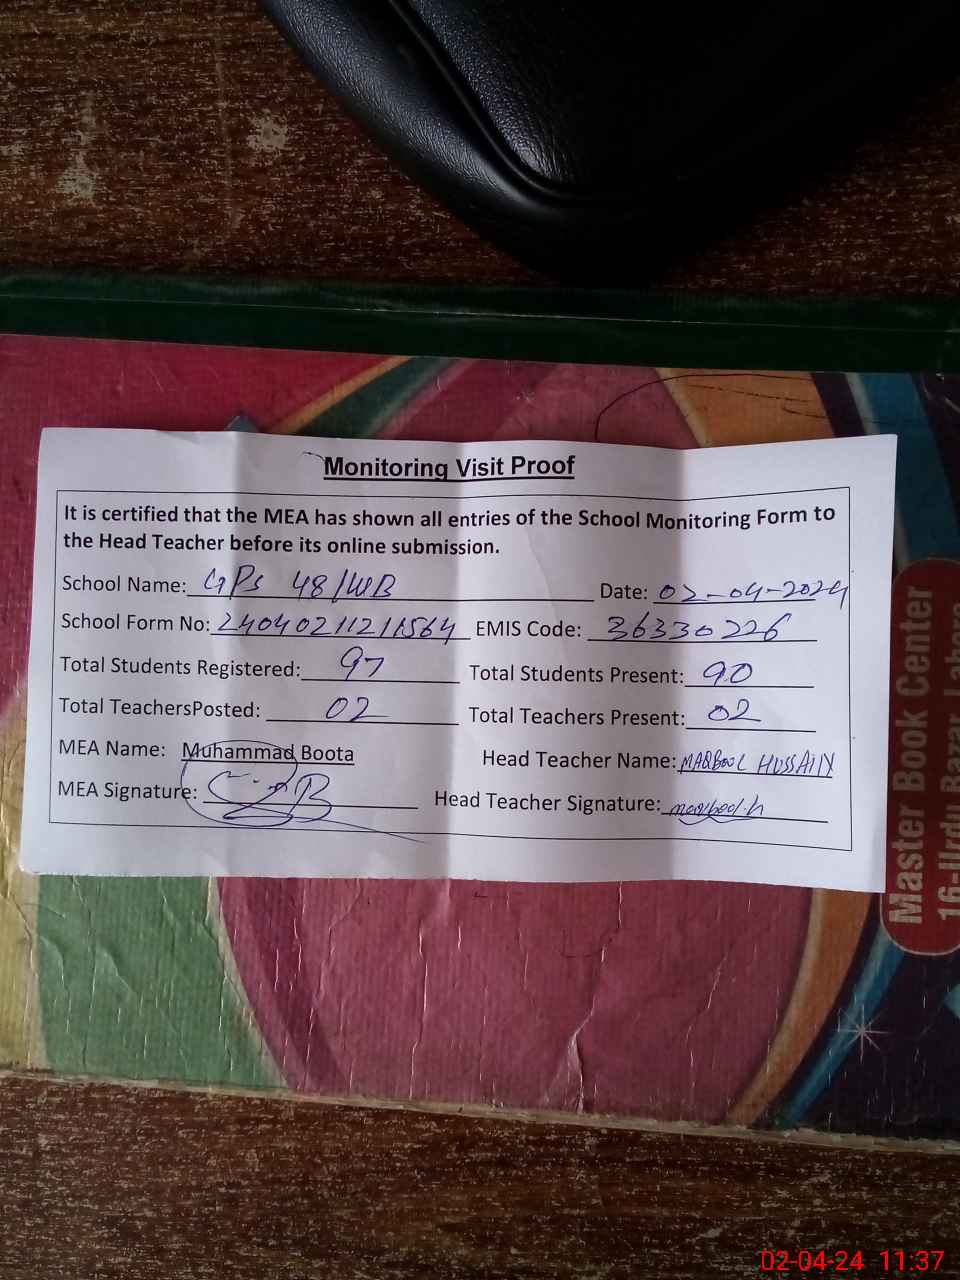 Monitoring Visit Proof
It is certified that the MEA has shown all entries of the School Monitoring Form to
the Head Teacher before its online submission.
School Name: GPS 48/WB Date: 02-04-2024
School Form No: 24040211211564 EMIS Code: 36330226
Total Students Registered: 97 Total Students Present: 90
Total TeachersPosted: 02 Total Teachers Present: 02
MEA Name: Muhammad Boota Head Teacher Name: MAQBOOL HUSSAIN
MEA Signature: Head Teacher Signature: maqbool.h
Master Book Center
16-Urdu Bazar Lahore
02-04-24 11:37